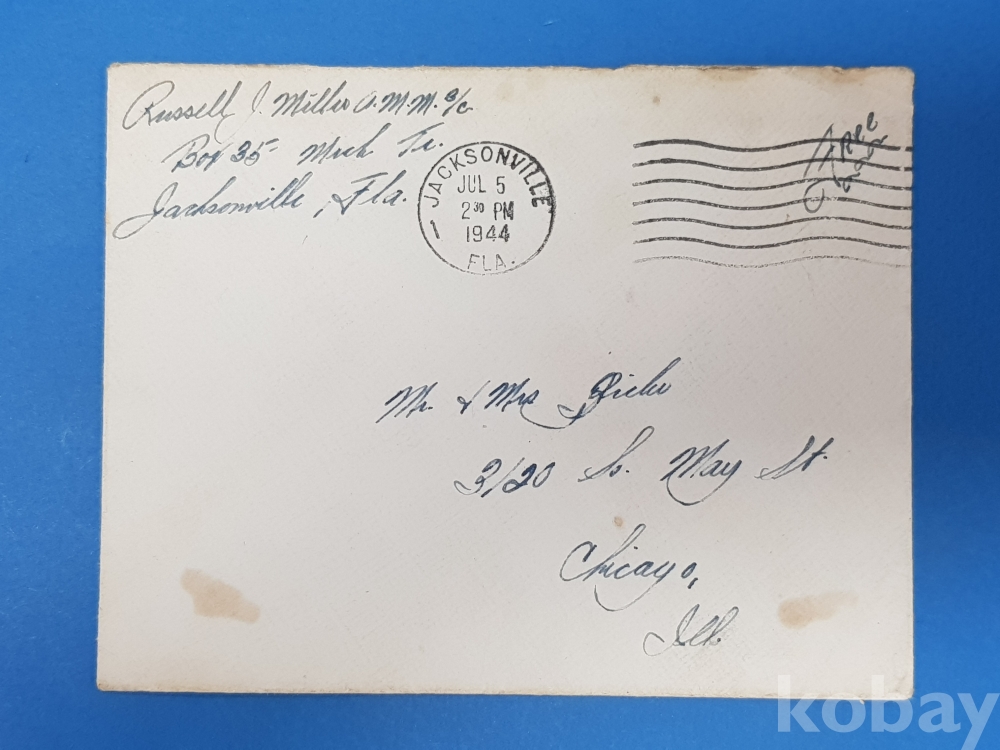 Russell J. Miller A.M.M. 3/c
Box 35 Mech Tr.
Jacksonville, Fla.
JACKSONVILLE
JUL 5
2 30 PM
1944
FLA.
Free
Mr. & Mrs
3120 So. May St.
Chicago,
Ill.
kobay